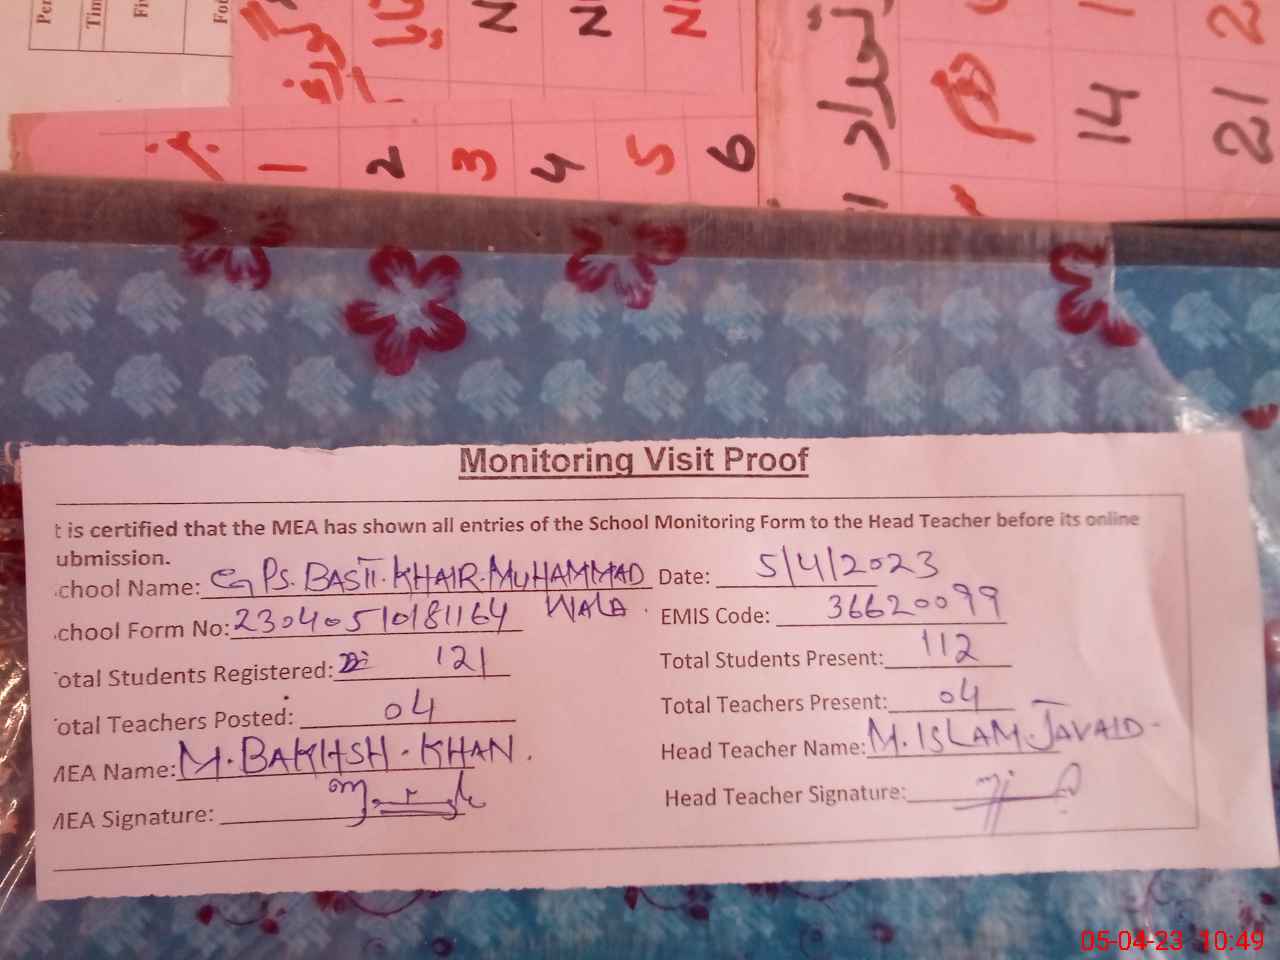 Per
Tim
Fir
For
N
N
N
تعداد
14
21
1
2
3
4
5
6
Monitoring Visit Proof
t is certified that the MEA has shown all entries of the School Monitoring Form to the Head Teacher before its online
ubmission.
chool Name: GPS. BASTI. KHAIR. MUHAMMAD WALA. Date: 5/4/2023
chool Form No: 23040510181164 EMIS Code: 36620099
otal Students Registered: 121 Total Students Present: 112
otal Teachers Posted: 04 Total Teachers Present: 04
MEA Name: M. BAKHSH. KHAN. Head Teacher Name: M. ISLAM. JAVAID-
MEA Signature: Head Teacher Signature:
05-04-23 10:49